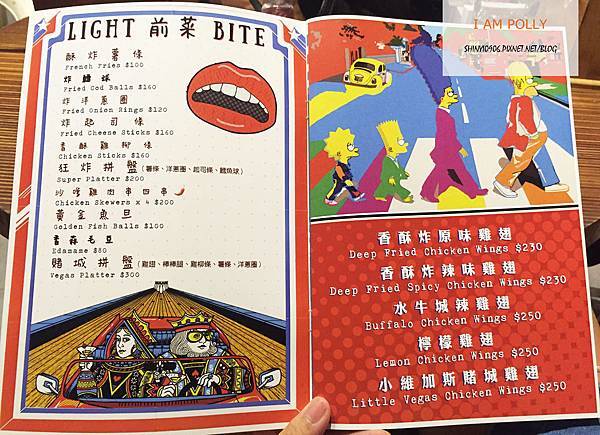 I AM POLLY
SHINY10906.PIXNET.NET/BLOG
LIGHT 前菜 BITE
酥炸薯條
French Fries $100
炸鱈球
Fried Cod Balls $160
炸洋蔥圈
Fried Onion Rings $120
炸起司條
Fried Cheese Sticks $160
香酥雞柳條
Chicken Sticks $160
狂炸拼盤(薯條、洋蔥圈、起司條、鱈魚球)
Super Platter $200
沙嗲雞肉串四串
Chicken Skewers x 4 $200
黃金魚旦
Golden Fish Balls $100
香蒜毛豆
Edamame $80
賭城拼盤(雞翅、棒棒腿、雞柳條、薯條、洋蔥圈)
Vegas Platter $300
香酥炸原味雞翅
Deep Fried Chicken Wings $230
香酥炸辣味雞翅
Deep Fried Spicy Chicken Wings $230
水牛城辣雞翅
Buffalo Chicken Wings $250
檸檬雞翅
Lemon Chicken Wings $250
小維加斯賭城雞翅
Little Vegas Chicken Wings $250